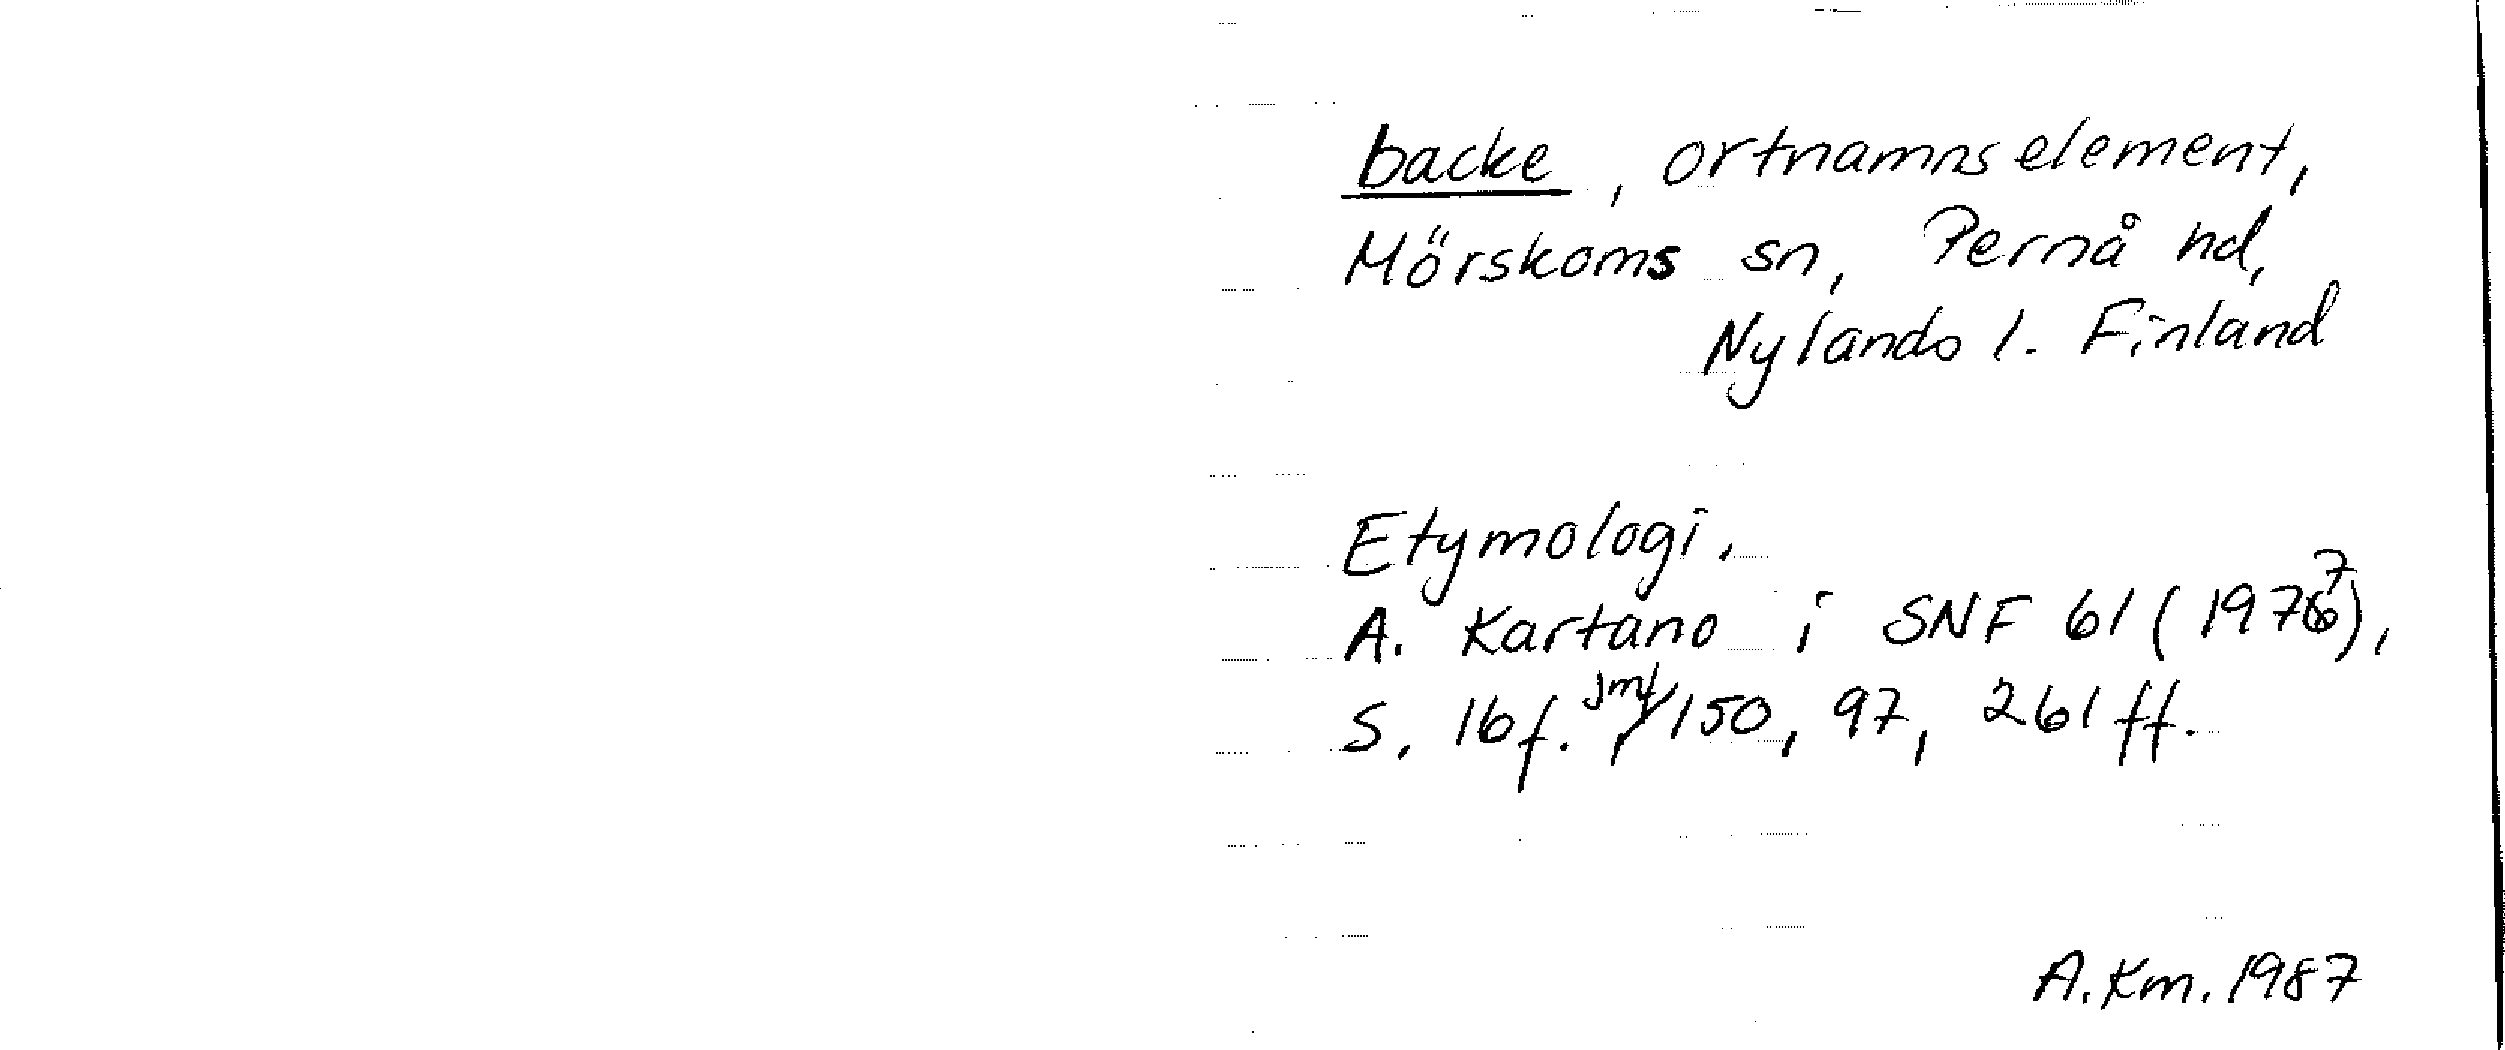 backe, ortnamnselement,
Mörskoms sn, Pernå hd,
Nylands l. Finland
Etymologi.
A. Kartano i SNF 61 (1977),
S. 16f. jmf 150, 97, 261 ff.
A. Km. 1987